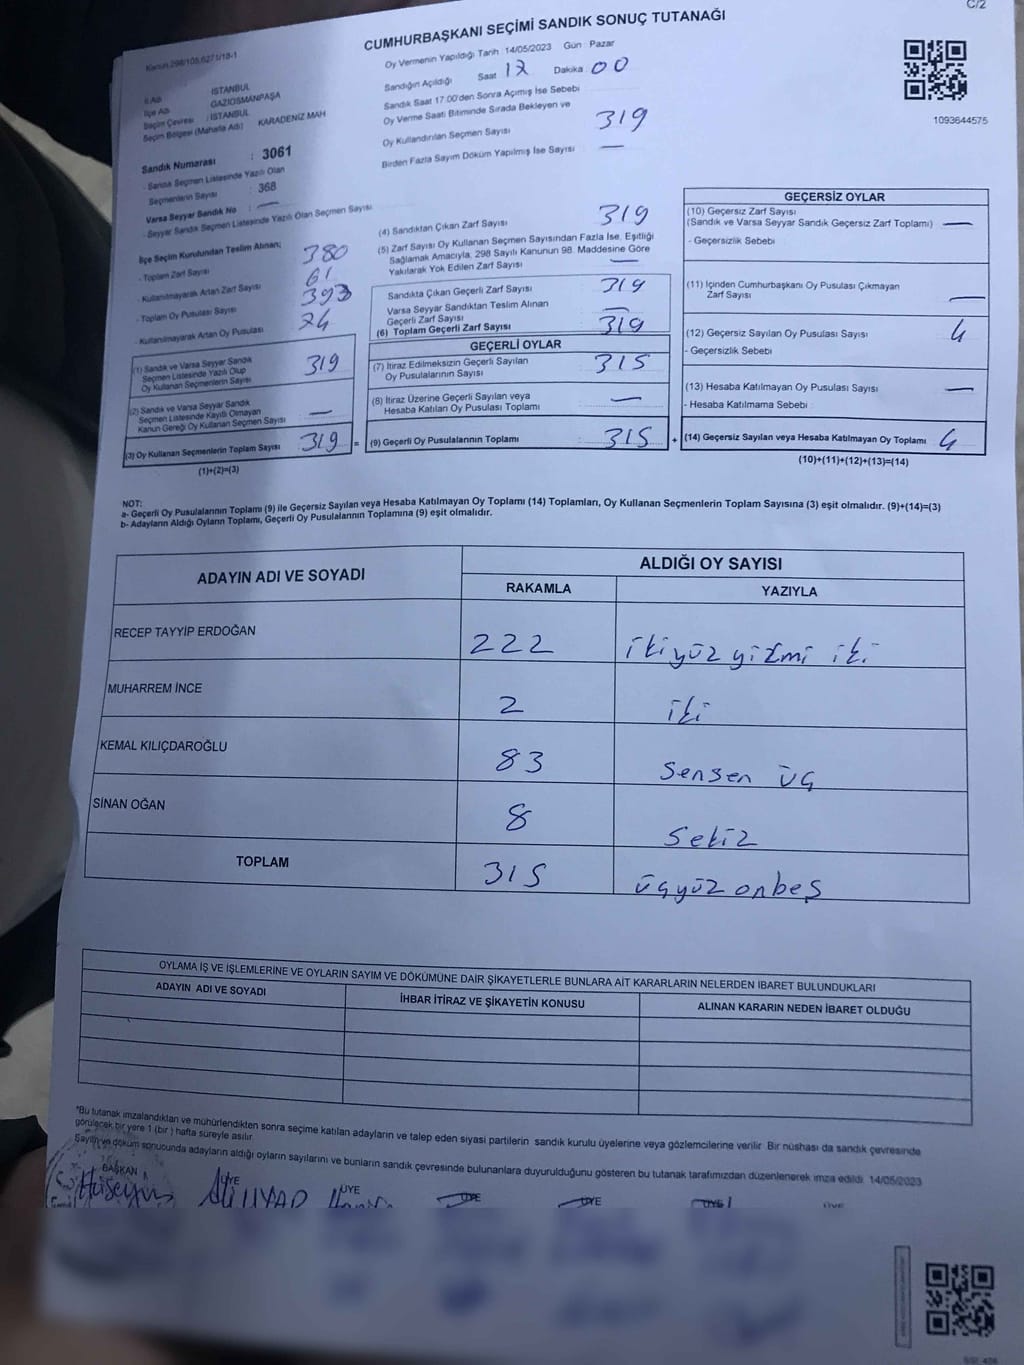 C/2
CUMHURBAŞKANI SEÇİMİ SANDIK SONUÇ TUTANAĞI
Kanun:298/105,6271/18-1
İl Adı : İSTANBUL
İlçe Adı : GAZİOSMANPAŞA
Seçim Çevresi : İSTANBUL
Seçim Bölgesi (Mahalle Adı) : KARADENİZ MAH
Sandık Numarası : 3061
- Sandık Seçmen Listesinde Yazılı Olan
Seçmenlerin Sayısı : 368
Varsa Seyyar Sandık No : —
- Seyyar Sandık Seçmen Listesinde Yazılı Olan Seçmen Sayısı
Oy Vermenin Yapıldığı Tarih 14/05/2023 Gün Pazar
Sandığın Açıldığı Saat 17 Dakika 00
Sandık Saat 17:00'den Sonra Açılmış İse Sebebi
Oy Verme Saati Bitiminde Sırada Bekleyen ve
Oy Kullandırılan Seçmen Sayısı 319
Birden Fazla Sayım Döküm Yapılmış İse Sayısı —
1093644575
İlçe Seçim Kurulundan Teslim Alınan;
- Toplam Zarf Sayısı 380
- Kullanılmayarak Artan Zarf Sayısı 61
- Toplam Oy Pusulası Sayısı 393
- Kullanılmayarak Artan Oy Pusulası 74
(1) Sandık ve Varsa Seyyar Sandık
Seçmen Listesinde Yazılı Olup
Oy Kullanan Seçmenlerin Sayısı 319
(2) Sandık ve Varsa Seyyar Sandık
Seçmen Listesinde Kayıtlı Olmayan
Kanun Gereği Oy Kullanan Seçmen Sayısı —
(3) Oy Kullanan Seçmenlerin Toplam Sayısı 319 =
(1)+(2)=(3)
(4) Sandıktan Çıkan Zarf Sayısı 319
(5) Zarf Sayısı Oy Kullanan Seçmen Sayısından Fazla İse, Eşitliği
Sağlamak Amacıyla, 298 Sayılı Kanunun 98. Maddesine Göre
Yakılarak Yok Edilen Zarf Sayısı —
Sandıkta Çıkan Geçerli Zarf Sayısı 319
Varsa Seyyar Sandıktan Teslim Alınan
Geçerli Zarf Sayısı —
(6) Toplam Geçerli Zarf Sayısı 319
GEÇERLİ OYLAR
(7) İtiraz Edilmeksizin Geçerli Sayılan
Oy Pusulalarının Sayısı 315
(8) İtiraz Üzerine Geçerli Sayılan veya
Hesaba Katılan Oy Pusulası Toplamı —
(9) Geçerli Oy Pusulalarının Toplamı 315 +
GEÇERSİZ OYLAR
(10) Geçersiz Zarf Sayısı
(Sandık ve Varsa Seyyar Sandık Geçersiz Zarf Toplamı) —
- Geçersizlik Sebebi
(11) İçinden Cumhurbaşkanı Oy Pusulası Çıkmayan
Zarf Sayısı —
(12) Geçersiz Sayılan Oy Pusulası Sayısı 4
- Geçersizlik Sebebi
(13) Hesaba Katılmayan Oy Pusulası Sayısı —
- Hesaba Katılmama Sebebi
(14) Geçersiz Sayılan veya Hesaba Katılmayan Oy Toplamı 4
(10)+(11)+(12)+(13)=(14)
NOT:
a- Geçerli Oy Pusulalarının Toplamı (9) ile Geçersiz Sayılan veya Hesaba Katılmayan Oy Toplamı (14) Toplamları, Oy Kullanan Seçmenlerin Toplam Sayısına (3) eşit olmalıdır. (9)+(14)=(3)
b- Adayların Aldığı Oyların Toplamı, Geçerli Oy Pusulalarının Toplamına (9) eşit olmalıdır.
ADAYIN ADI VE SOYADI ALDIĞI OY SAYISI
RAKAMLA YAZIYLA
RECEP TAYYİP ERDOĞAN 222 ikiyüz yirmi iki
MUHARREM İNCE 2 iki
KEMAL KILIÇDAROĞLU 83 Sensen üç
SİNAN OĞAN 8 Sekiz
TOPLAM 315 üçyüz onbeş
OYLAMA İŞ VE İŞLEMLERİNE VE OYLARIN SAYIM VE DÖKÜMÜNE DAİR ŞİKAYETLERLE BUNLARA AİT KARARLARIN NELERDEN İBARET BULUNDUKLARI
ADAYIN ADI VE SOYADI İHBAR İTİRAZ VE ŞİKAYETİN KONUSU ALINAN KARARIN NEDEN İBARET OLDUĞU
*Bu tutanak imzalandıktan ve mühürlendikten sonra seçime katılan adayların ve talep eden siyasi partilerin sandık kurulu üyelerine veya gözlemcilerine verilir. Bir nüshası da sandık çevresinde
görülecek bir yere 1 (bir) hafta süreyle asılır.
Sayım ve döküm sonucunda adayların aldığı oyların sayılarını ve bunların sandık çevresinde bulunanlara duyurulduğunu gösteren bu tutanak tarafımızdan düzenlenerek imza edildi. 14/05/2023
BAŞKAN ÜYE ÜYE ÜYE ÜYE ÜYE ÜYE
Hüseyin